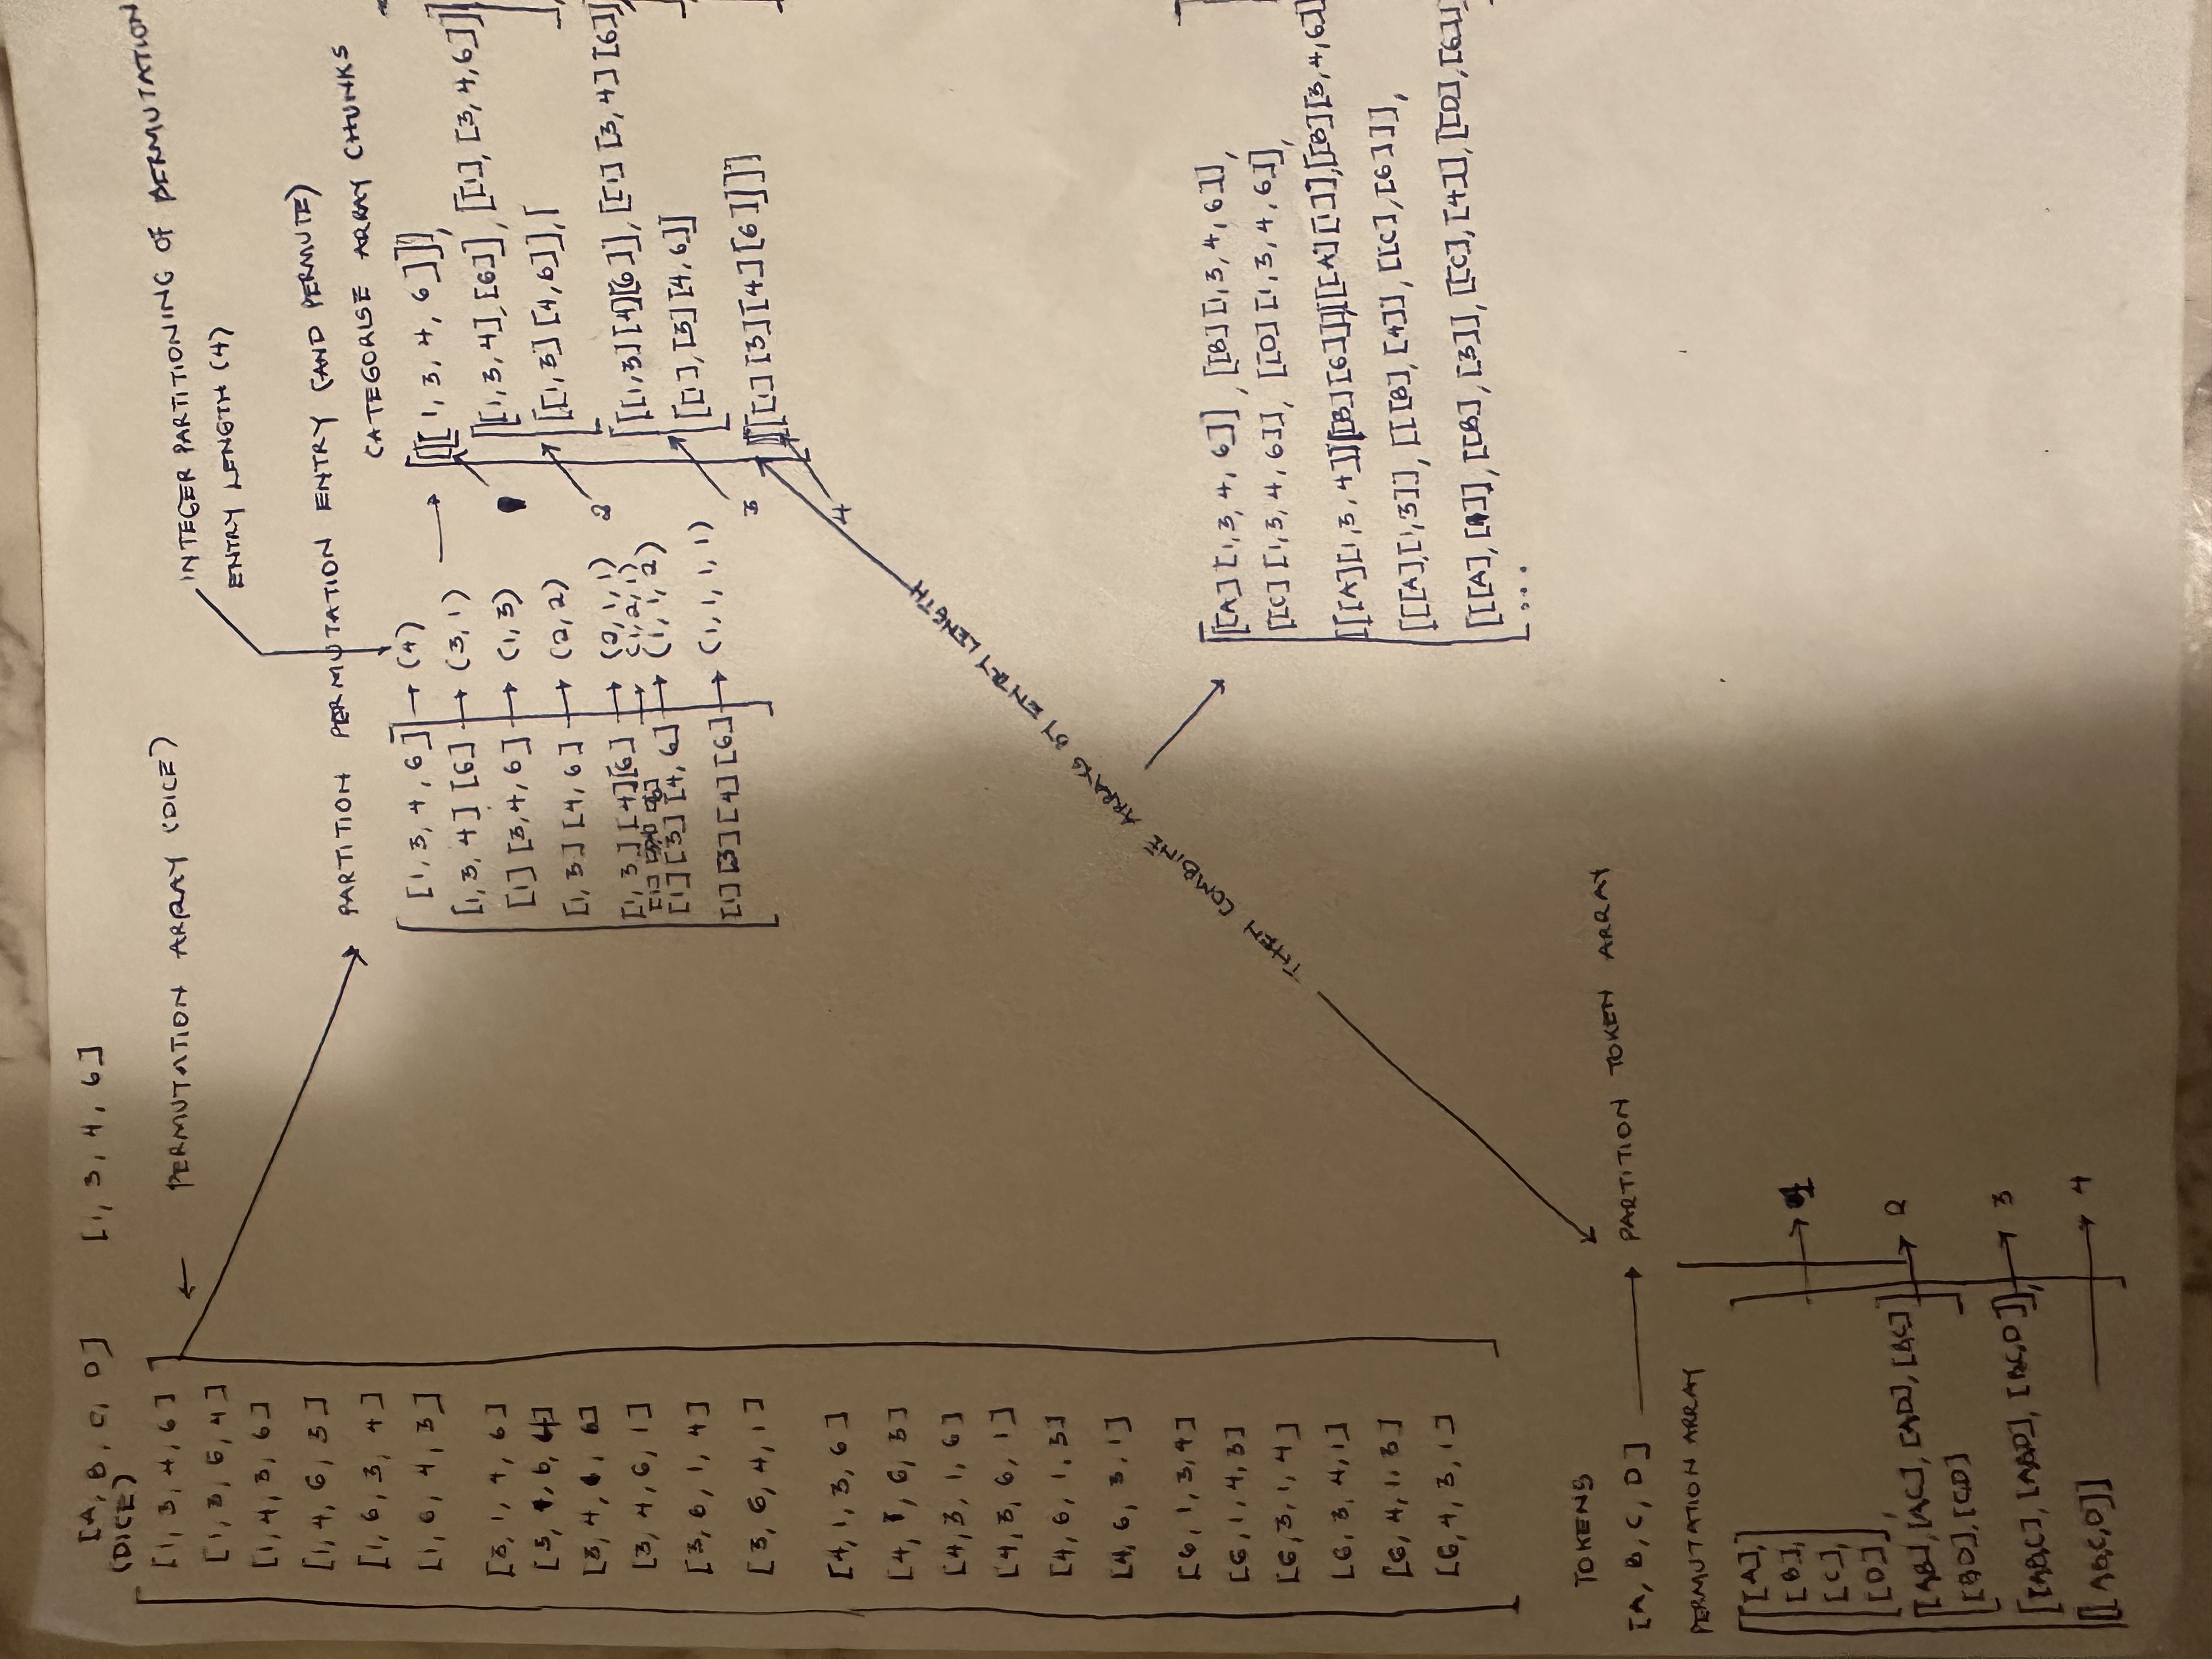 [A, B, C, D] [1, 3, 4, 6]
(DICE)
[1, 3, 4, 6]
← PERMUTATION ARRAY (DICE)
[1, 3, 6, 4]
[1, 4, 3, 6]
[1, 4, 6, 3]
[1, 6, 3, 4]
[1, 6, 4, 3]
[3, 1, 4, 6]
[3, 1, 6, 4]
[3, 4, 1, 6]
[3, 4, 6, 1]
[3, 6, 1, 4]
[3, 6, 4, 1]
[4, 1, 3, 6]
[4, 1, 6, 3]
[4, 3, 1, 6]
[4, 3, 6, 1]
[4, 6, 1, 3]
[4, 6, 3, 1]
[6, 1, 3, 4]
[6, 1, 4, 3]
[6, 3, 1, 4]
[6, 3, 4, 1]
[6, 4, 1, 3]
[6, 4, 3, 1]
INTEGER PARTITIONING OF PERMUTATION
ENTRY LENGTH (4)
PARTITION PERMUTATION ENTRY (AND PERMUTE)
[1, 3, 4, 6] → (4)
[1, 3, 4] [6] → (3, 1)
[1] [3, 4, 6] → (1, 3)
[1, 3] [4, 6] → (2, 2)
[1, 3] [4][6] → (2, 1, 1)
→ (1, 2, 1)
[1] [3] [4, 6] → (1, 1, 2)
[1] [3] [4] [6] → (1, 1, 1, 1)
CATEGORISE ARRAY CHUNKS
→ [[[1, 3, 4, 6]]],
[[1, 3, 4], [6]], [[1], [3, 4, 6]]
[[1, 3] [4, 6]], [
2
[[[1, 3] [4][6]], [[1] [3, 4] [6]]
[[1], [3] [4, 6]]
3
[[[1] [3] [4] [6]]]
4
THEN COMBINE ARRAYS BY ENTRY LENGTH
[[A] [1, 3, 4, 6]], [[B] [1, 3, 4, 6]],
[[C] [1, 3, 4, 6]], [[D] [1, 3, 4, 6]],
[[[A][1, 3, 4]][[B][6]]][[[A][1]],[[B][3, 4, 6]]
[[[A],[1, 3]], [[[B], [4]], [[C], [6]]],
[[[A], [1]], [[B], [3]], [[C], [4]], [[D], [6]]
...
TOKENS
[A, B, C, D] → PARTITION TOKEN ARRAY
PERMUTATION ARRAY
[[[A],
[B],
→ 1
[C],
[D]],
[[AB], [AC], [AD], [BC] → 2
[BD], [CD]
[[ABC], [ABD], [BCD]], → 3
[[ABCD]] → 4